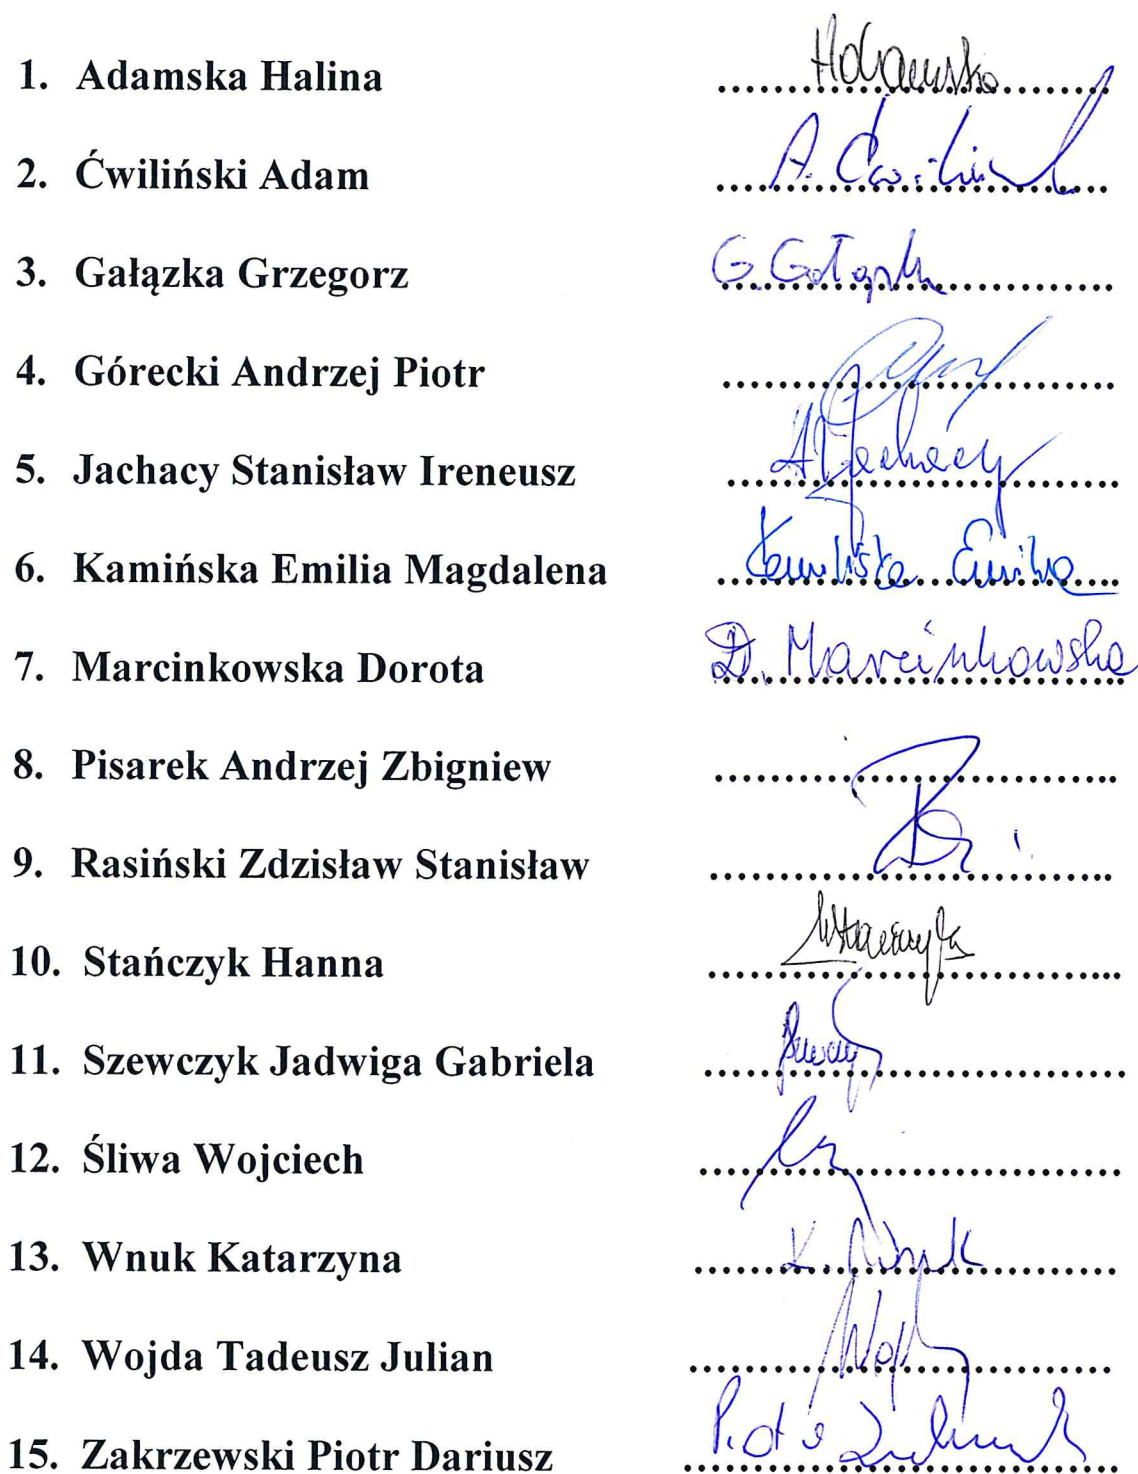 1. Adamska Halina HAdamska
2. Ćwiliński Adam A. Ćwiliń
3. Gałązka Grzegorz G. Gałązka
4. Górecki Andrzej Piotr
5. Jachacy Stanisław Ireneusz Jachacy
6. Kamińska Emilia Magdalena Kamińska Emilia
7. Marcinkowska Dorota D. Marcinkowska
8. Pisarek Andrzej Zbigniew
9. Rasiński Zdzisław Stanisław
10. Stańczyk Hanna
11. Szewczyk Jadwiga Gabriela
12. Śliwa Wojciech
13. Wnuk Katarzyna K. Wnuk
14. Wojda Tadeusz Julian
15. Zakrzewski Piotr Dariusz Piotr